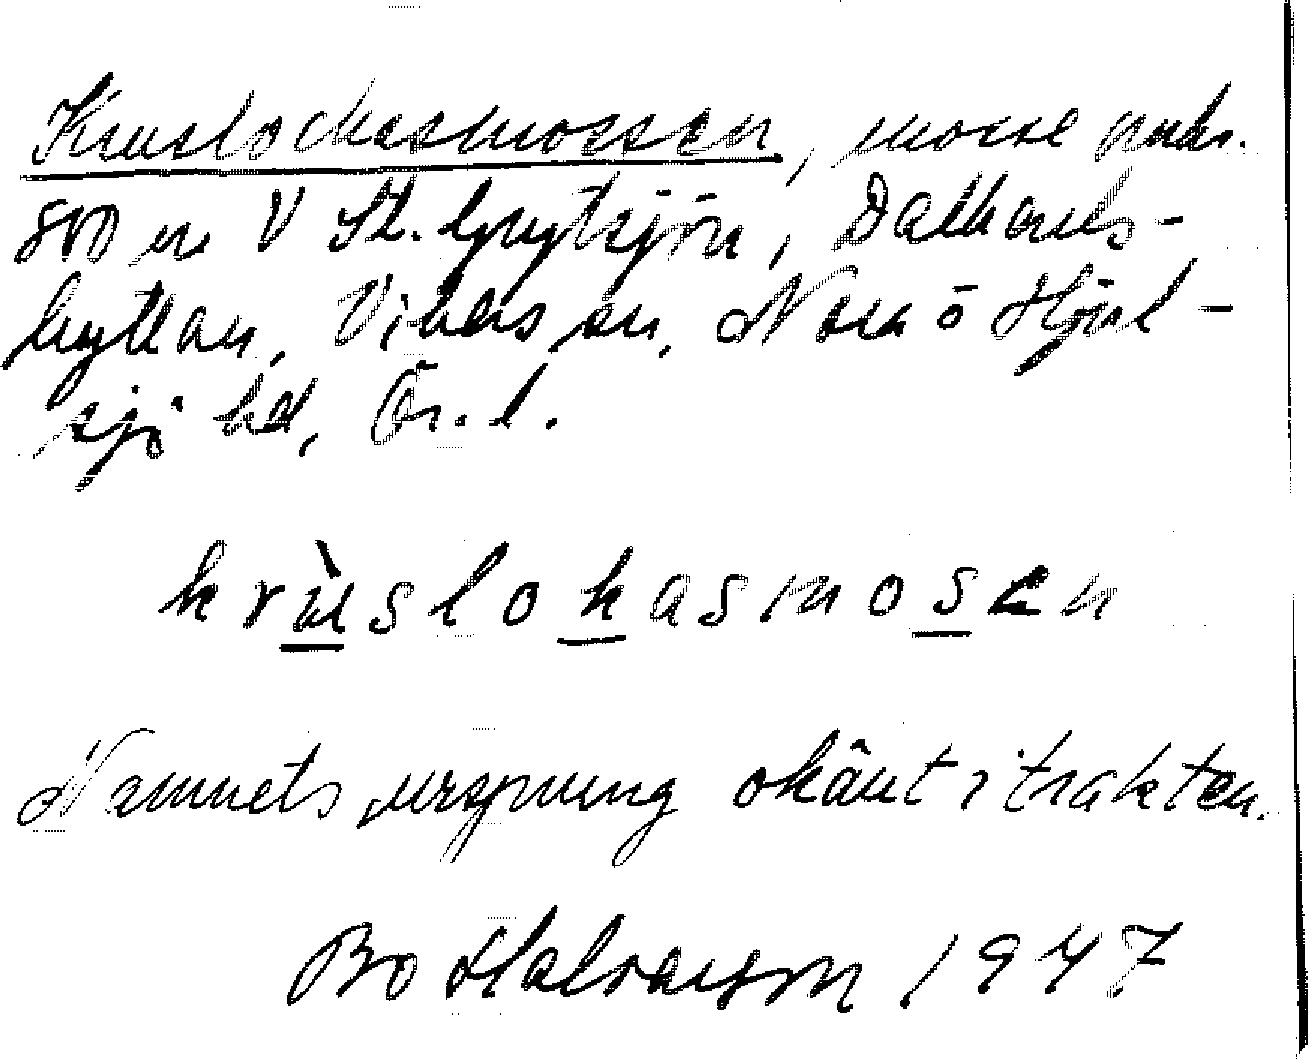 Kruslockasmossen, mosse
800 m V St. Grytsjön, Dalkarls-
hyttan, Vikers sn, Nora o Hjul-
sjö hd, Ör. l.
krùslokasmosen
Namnets ursprung okänt i trakten.
Bo Halvarson 1947